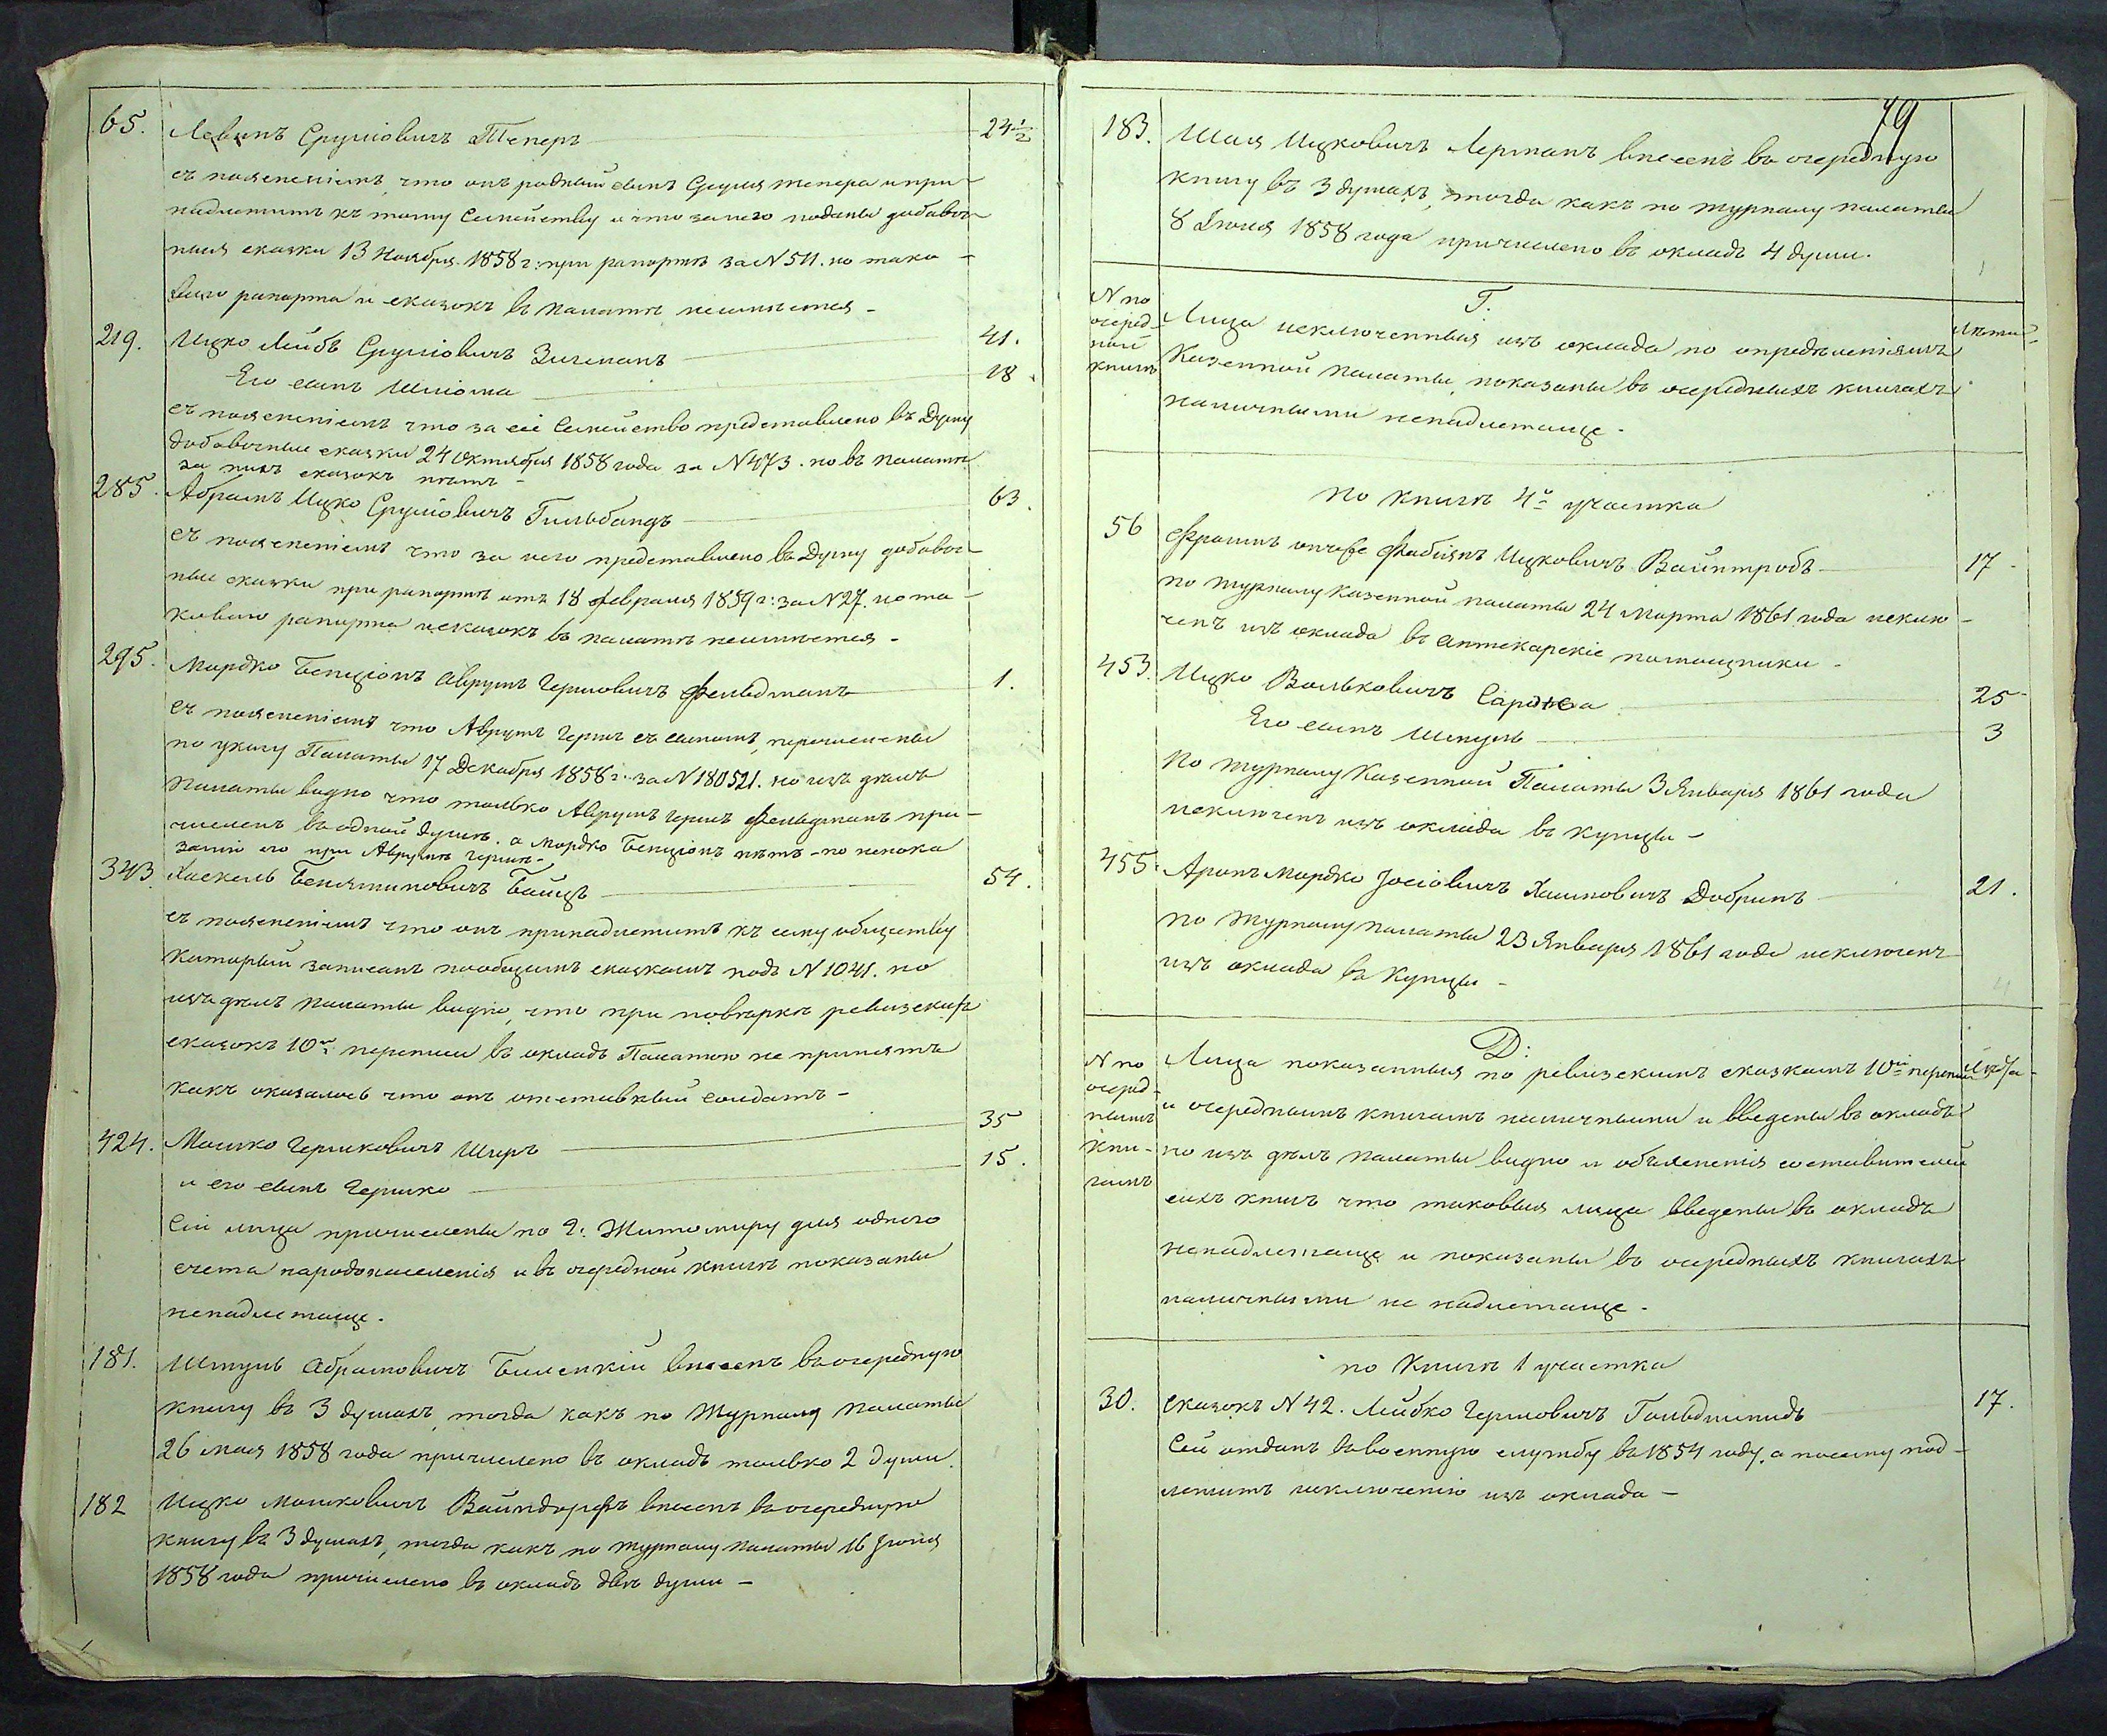 65. Левинъ Сруліовичъ Теперъ 24 1/2
съ поясненіемъ, что онъ родный сынъ Сруля тепера и при-
надлежитъ къ тому Семейству и что за него поданы добавоч-
ныя сказки 13 Ноября 1858 г: при рапортѣ за N 511. но тако-
ваго рапорта и сказокъ въ палатѣ неимѣется -
219. Ицко Лейбъ Сруліовичъ Зигманъ 41.
Его сынъ Шліома 18.
съ поясненіемъ что за сіе Семейство представлено въ Думу
добавочныя сказки 24 Октября 1858 года за N 473. но въ палатѣ
за нихъ сказокъ нѣтъ -
285. Абрамъ Ицко Сруліовичъ Гильбандъ 63.
съ поясненіемъ что за него представлено въ Думу добавоч-
ныя сказки при рапортѣ отъ 18 февраля 1859 г: за N 27. но та-
коваго рапорта и сказокъ въ палатѣ неимѣется -
295. Мордко Бенціонъ Аврумъ Гершовичъ Фельдманъ 1.
съ поясненіемъ что Аврумъ Гершъ съ сыномъ, перечислены
по указу Палаты 17 Декабря 1858 г. за N 180521. но изъ дѣлъ
Палаты видно что только Аврумъ Гершъ Фельдманъ при-
численъ въ одной душѣ. а Мордко Бенціонъ нѣтъ - по непока
занію его при Аврумѣ Гершѣ -
343. Хаскель Беняминовичъ Байцъ 54.
съ поясненіемъ что онъ принадлежитъ къ сему обществу
который записанъ пообщимъ сказкамъ подъ N 1041. но
изъ дѣлъ палаты видно, что при повѣркѣ ревизскихъ
сказокъ 10й переписи въ окладъ Палатою не принятъ
какъ оказалось что онъ отставный солдатъ -
424. Мошко Гершковичъ Ширъ 35
и его сынъ Гершко 15.
Сіи лица причислены по г: Житомиру для одного
счета народонаселенія и въ очередной книгѣ показаны
ненадлежаще.
181. Шмуль Абрамовичъ Биленкій внесенъ въ очередную
книгу въ 3 душахъ, тогда какъ по Журналу палаты
26 мая 1858 года причислено въ окладъ только 2 души.
182 Ицко Мошковичъ Вайндорфъ внесенъ въ очередную
книгу въ 3 душахъ, тогда какъ по журналу палаты 16 Іюня
1858 года причислено въ окладъ двѣ души -
79
183. Шая Ицковичъ Лерманъ внесенъ въ очередную
книгу въ 3 душахъ, тогда какъ по журналу палаты
8 Іюня 1858 года причислено въ окладъ 4 души.
Г.
N по
очеред-
ной
книгѣ
Лица исключенныя изъ оклада по опредѣленіямъ
Казенной палаты, показаны въ очередныхъ книгахъ
наличными ненадлежаще.
Лѣта
по книгѣ 4го участка
56 Фраимъ онъ же Фабіянъ Ицковичъ Вайнтробъ 17 -
по журналу казенной палаты 24 Марта 1861 года исклю-
ченъ изъ оклада въ аптекарскіе помощники -
453. Ицко Вольковичъ 25
Его сынъ Шмуль 3
По журналу Казенной Палаты 3 Января 1861 года
исключенъ изъ оклада въ купцы -
455. Аронъ Мордко Іосіовичъ Хаимовичъ Добринъ 21.
по журналу палаты 23 Января 1861 года исключенъ
изъ оклада въ Купцы -
Д:
N по
очеред-
нымъ
кни-
гамъ
Лица показанныя по ревизскимъ сказкамъ 10й переписи
и очереднымъ книгамъ наличными и введены въ окладъ
но изъ дѣлъ палаты видно и объясненія составителей
сихъ книгъ что таковыя лица введены въ окладъ
ненадлежаще и показаны въ очередныхъ книгахъ
наличными не надлежаще.
по Книгѣ 1 участка
30. сказокъ N 42. Лейбко Гершовичъ Гольдшмидъ 17.
Сей отданъ въ военную службу въ 1854 году, а посему под-
лежитъ исключенію изъ оклада -